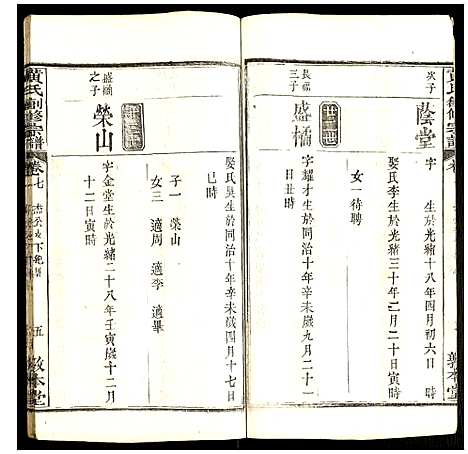 次子
蔭堂
字 生於光緒十八年四月初六日 時
娶氏李生於光緒三十年二月二十日寅時
女一 待聘
長福三子
盛橘
字耀才生於同治十年辛未歲九月二十一
日丑時
娶氏吳生於同治十年辛未歲四月十七日
巳時
子一 榮山
女三 適周 適李 適畢
盛橘之子
榮山
字金堂生於光緒二十八年壬寅歲十二月
十二日寅時
黃氏創修宗譜
卷七
五
敦本堂